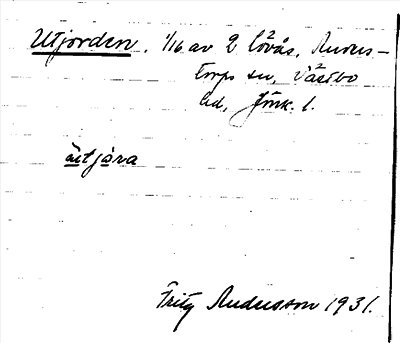 Utjorden. 1/16 av 2 Lövås, Anders-
torps sn, Västbo
hd, Jönk. l.
Fritz Andersson 1931.